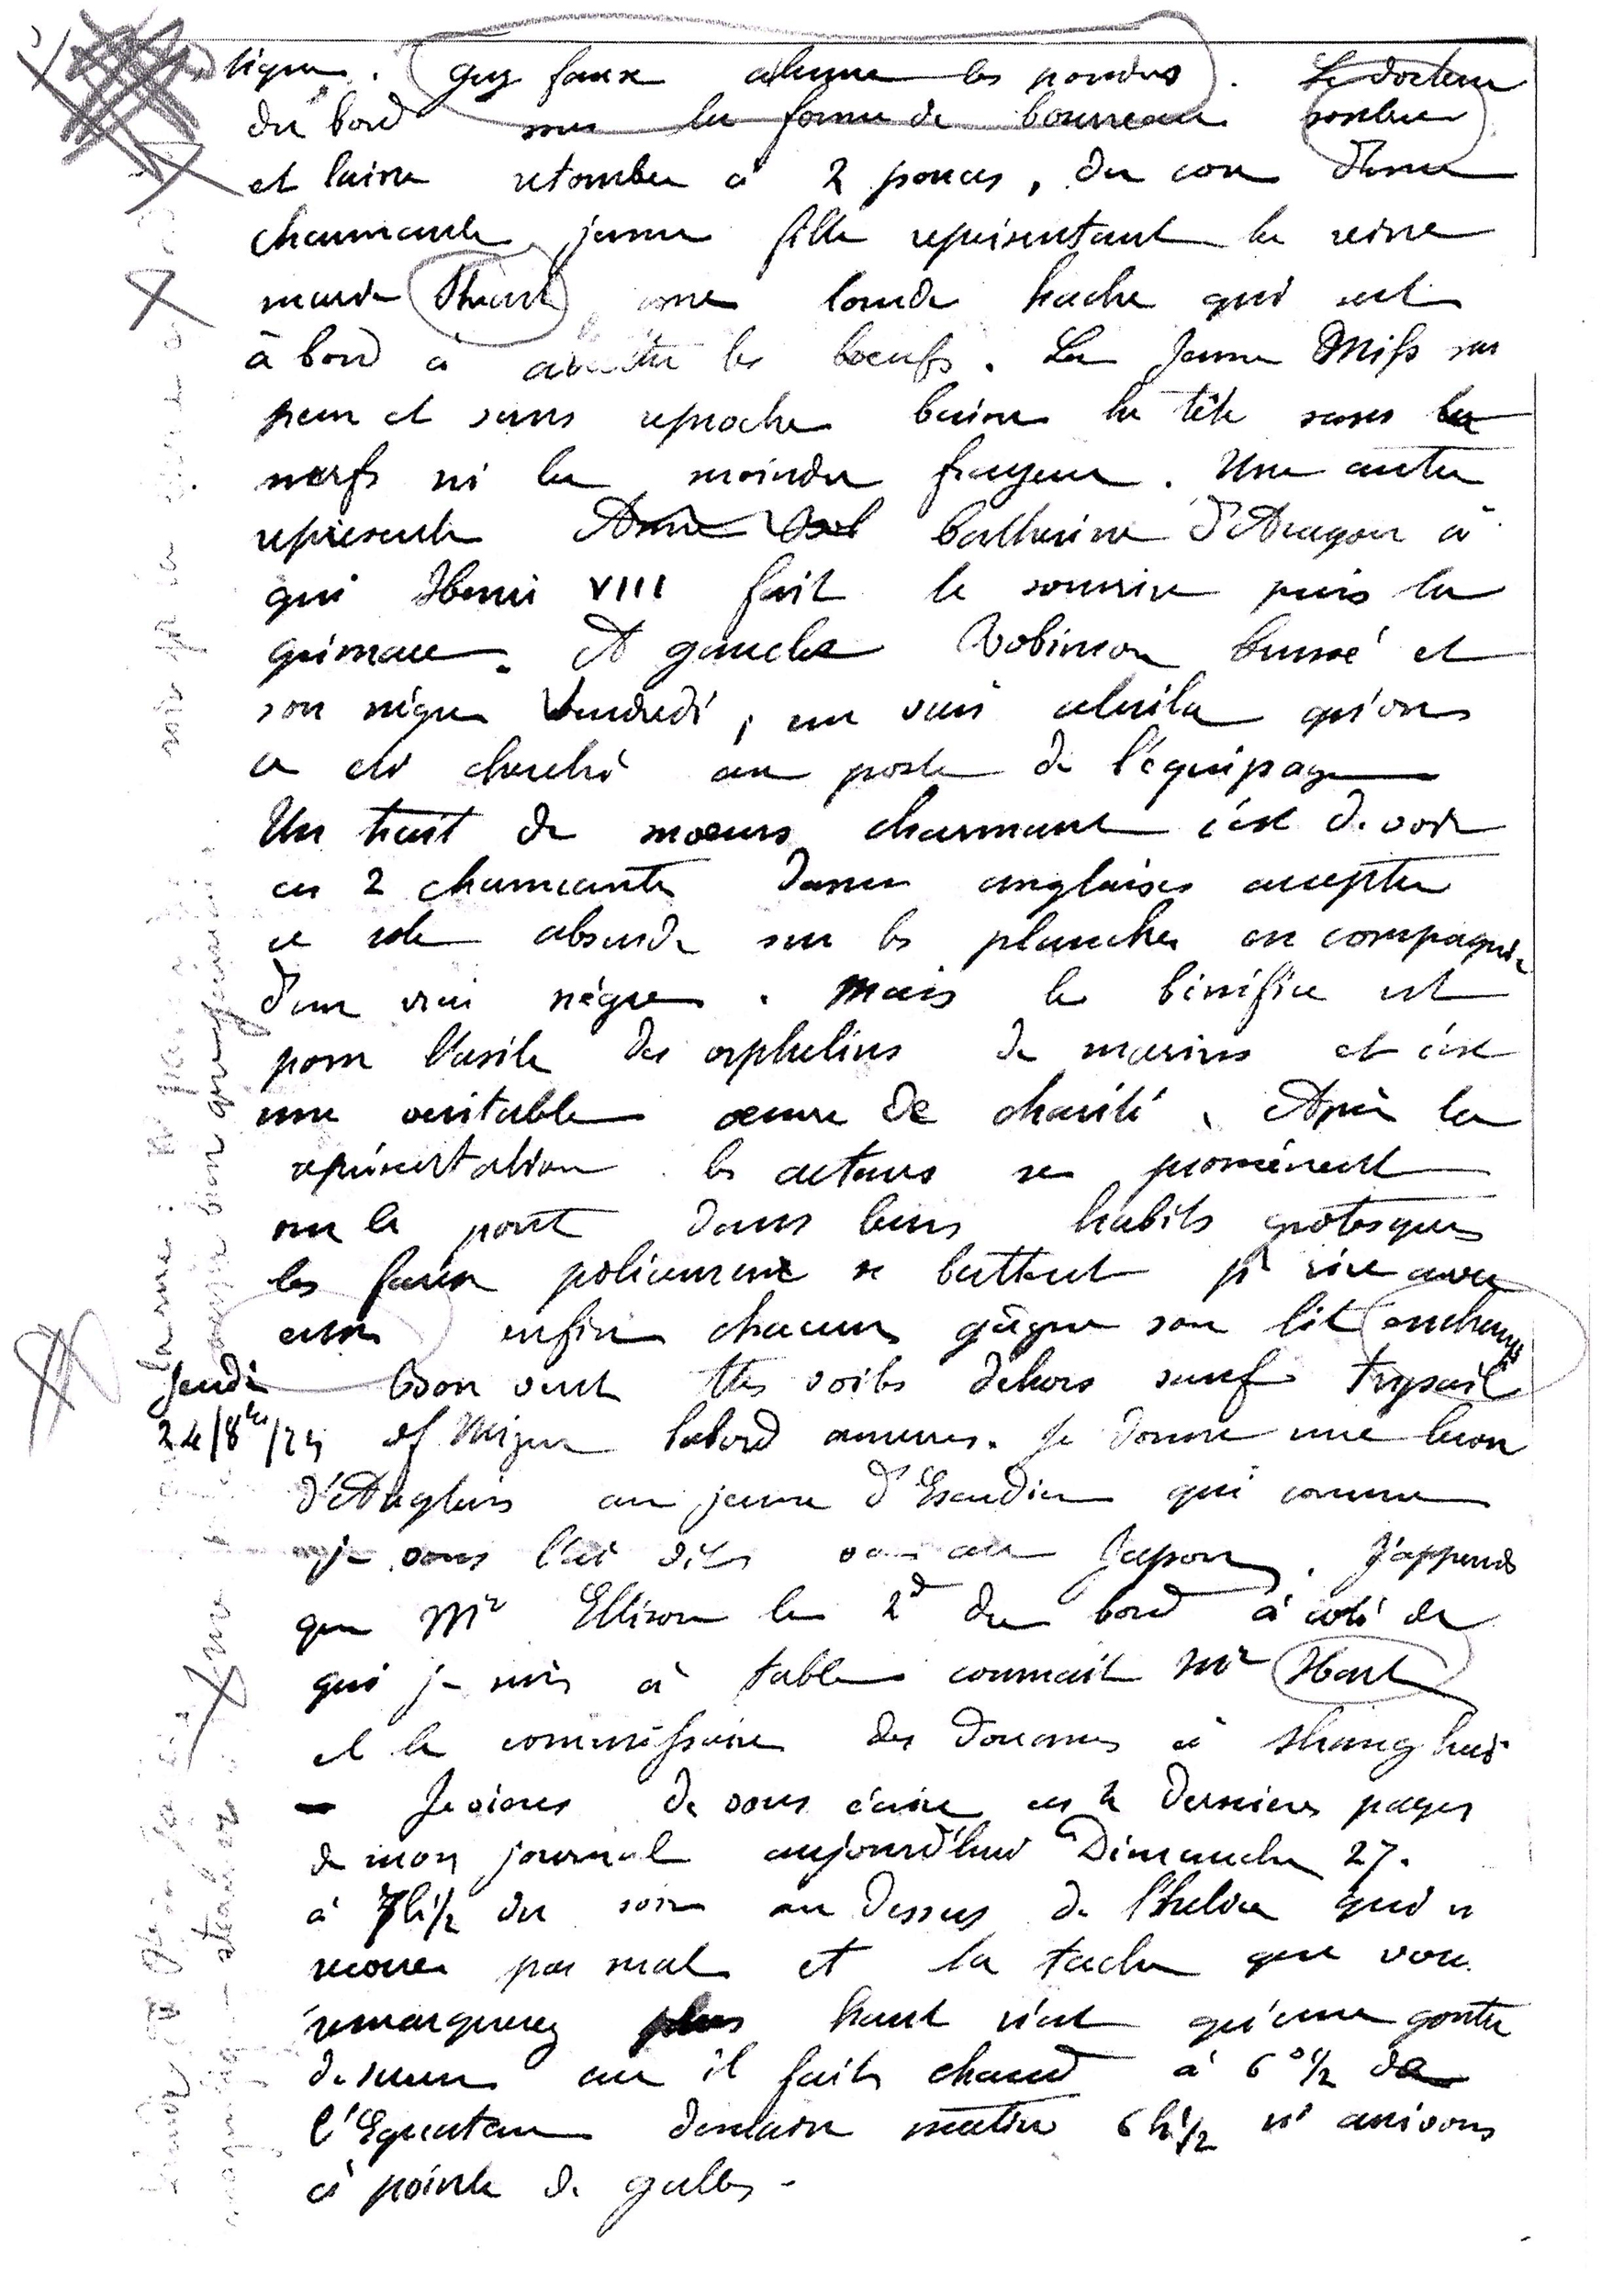 ligne. Guy faux allume les poudres. Le docteur
du bord sous la forme de bourreau sombre
et laisse retomber à 2 pouces, du cou d'une
charmante jeune fille représentant la reine
marie Stuart une lourde hache qui sert
à bord à abattre les boeufs. La Jeune Miss sans
peur et sans reproche baisse la tête sans
nerfs ni la moindre frayeur. Une autre
représente Catherine d'Aragon à
qui Henri VIII fait le sourire puis la
grimace. A gauche Robinson Crusoé et
son nègre Vendredi, un vrai celuila qu'on
a été cherché au poste de l'équipage
Un trait de moeurs charmant c'est de voir
ces 2 charmantes dames anglaises accepter
ce role absurde sur les planches en compagnie
d'un vrai nègre. Mais le bénéfice est
pour l'asile des orphelins de marins et c'est
une veritable oeuvre de charité. Après la
représentation les acteurs se promènent
sur le pont dans leurs habits grotesques
les faux policemen se battent pr rire avec
enfin chacun gâgne son lit enchanté
Jeudi Bon vent ttes voiles dehors sauf trysail
24/8bre/75 of Mizen babord amures. Je donne une lecon
d'Anglais au jeune d'Escudier qui comme
je vous l'ai dit va au Japon. J'apprends
que Mr Ellison le 2d du bord à coté de
qui je suis à table connait Mr Hart
et le commissaire des Douanes à Shang hai
— Je viens de vous écrire ces 2 dernieres pages
de mon journal aujourd'hui Dimanche 27.
à 7h1/2 du soir au dessus de l'hélice qui ns
secoue pas mal et la tache que vous
remarquerez plus haut n'est qu'une goutte
de sueur car il fait chaud à 6°1/2 de
l'Equateur demain matin 6h1/2 ns arrivons
à pointe de galles -